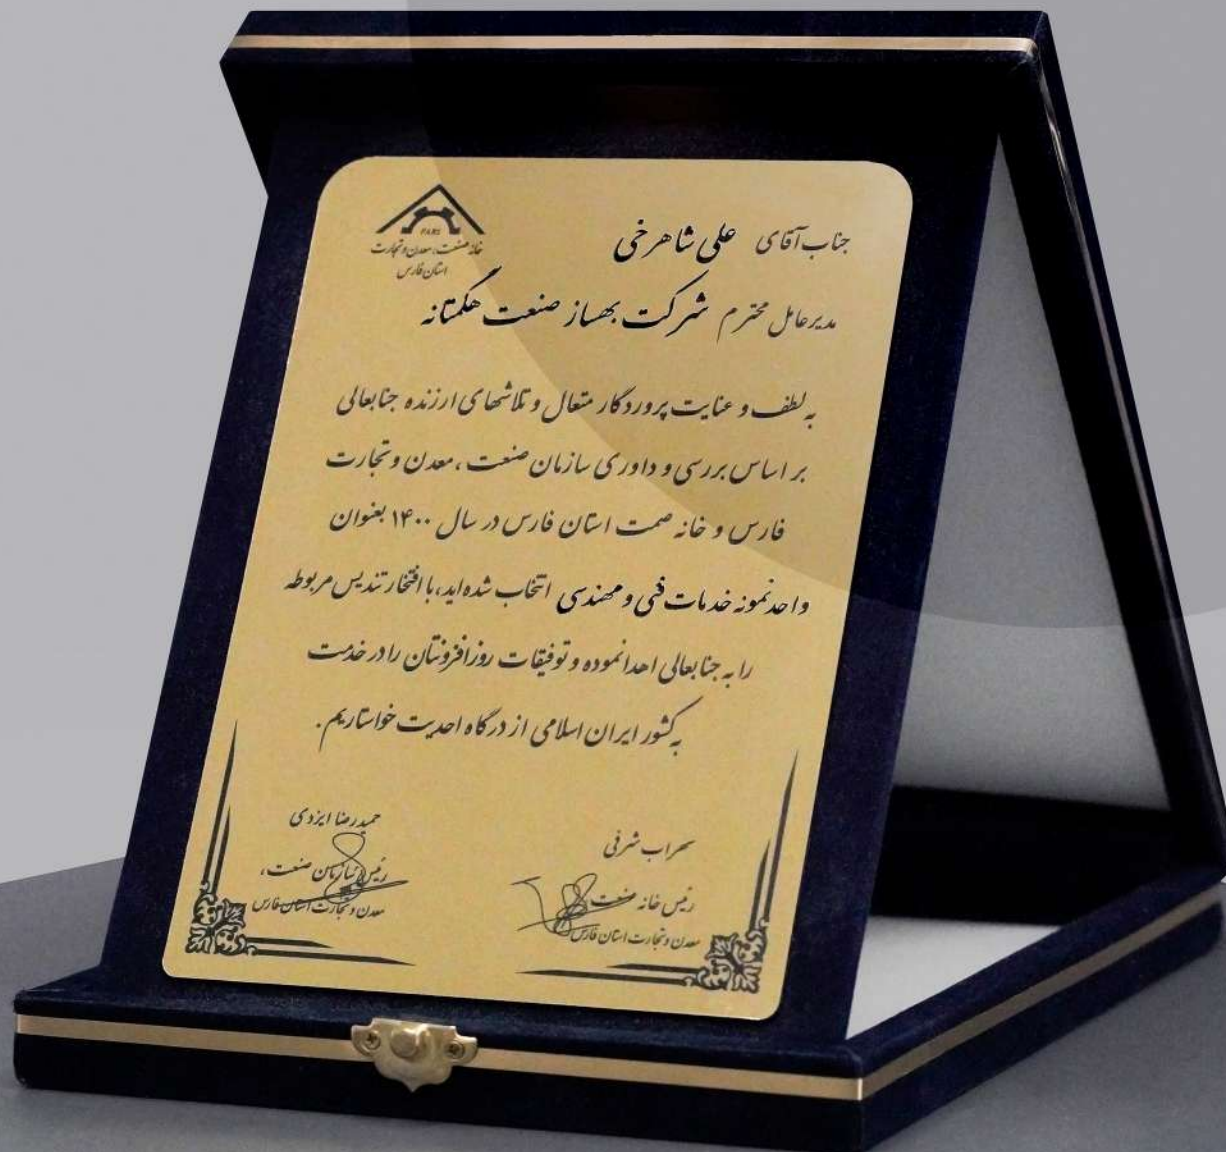 FARS
خانه صنعت، معدن و تجارت
استان فارس
جناب آقای علی شاهرخی
مدیرعامل محترم شرکت بهساز صنعت هگمتانه
به لطف و عنایت پروردگار متعال و تلاشهای ارزنده جنابعالی
بر اساس بررسی و داوری سازمان صنعت ، معدن و تجارت
فارس و خانه صمت استان فارس در سال ۱۴۰۰ بعنوان
واحد نمونه خدمات فنی و مهندسی انتخاب شده اید، با افتخار تندیس مربوطه
را به جنابعالی اهدا نموده و توفیقات روزافزونتان را در خدمت
به کشور ایران اسلامی از درگاه احدیت خواستاریم .
سهراب شرفی
رئیس خانه صنعت،
معدن و تجارت استان فارس
حمیدرضا ایزدی
رئیس سازمان صنعت،
معدن و تجارت استان فارس